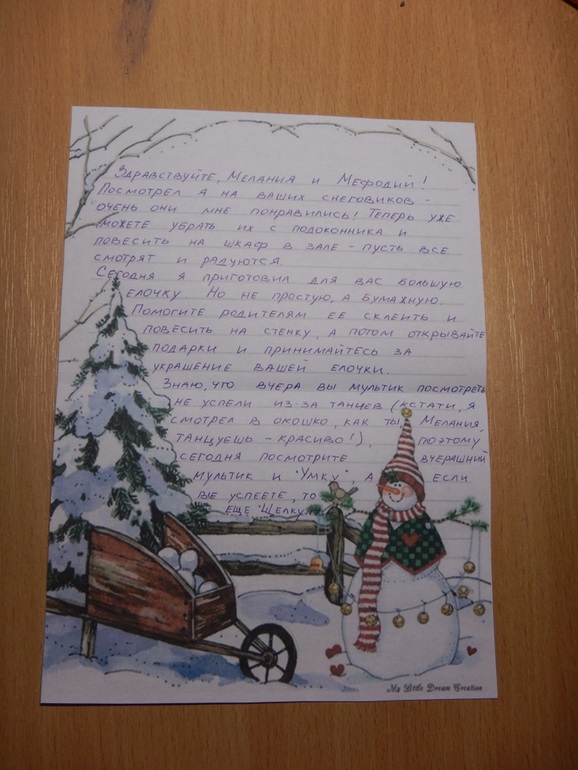 Здравствуйте, Мелания и Мефодий!
Посмотрел я на ваших снеговиков -
очень они мне понравились! Теперь уже
можете убрать их с подоконника и
повесить на шкаф в зале - пусть все
смотрят и радуются.
Сегодня я приготовил для вас большую
елочку. Но не простую, а бумажную.
Помогите родителям ее склеить и
повесить на стенку, а потом открывайте
подарки и принимайтесь за
украшение вашей елочки.
Знаю, что вчера вы мультик посмотреть
не успели из-за танцев (кстати, я
смотрел в окошко, как ты, Мелания,
танцуешь - красиво!), поэтому
сегодня посмотрите вчерашний
мультик и "Умку", а если
вы успеете, то
еще "Щелкун
My Little Dream Creation